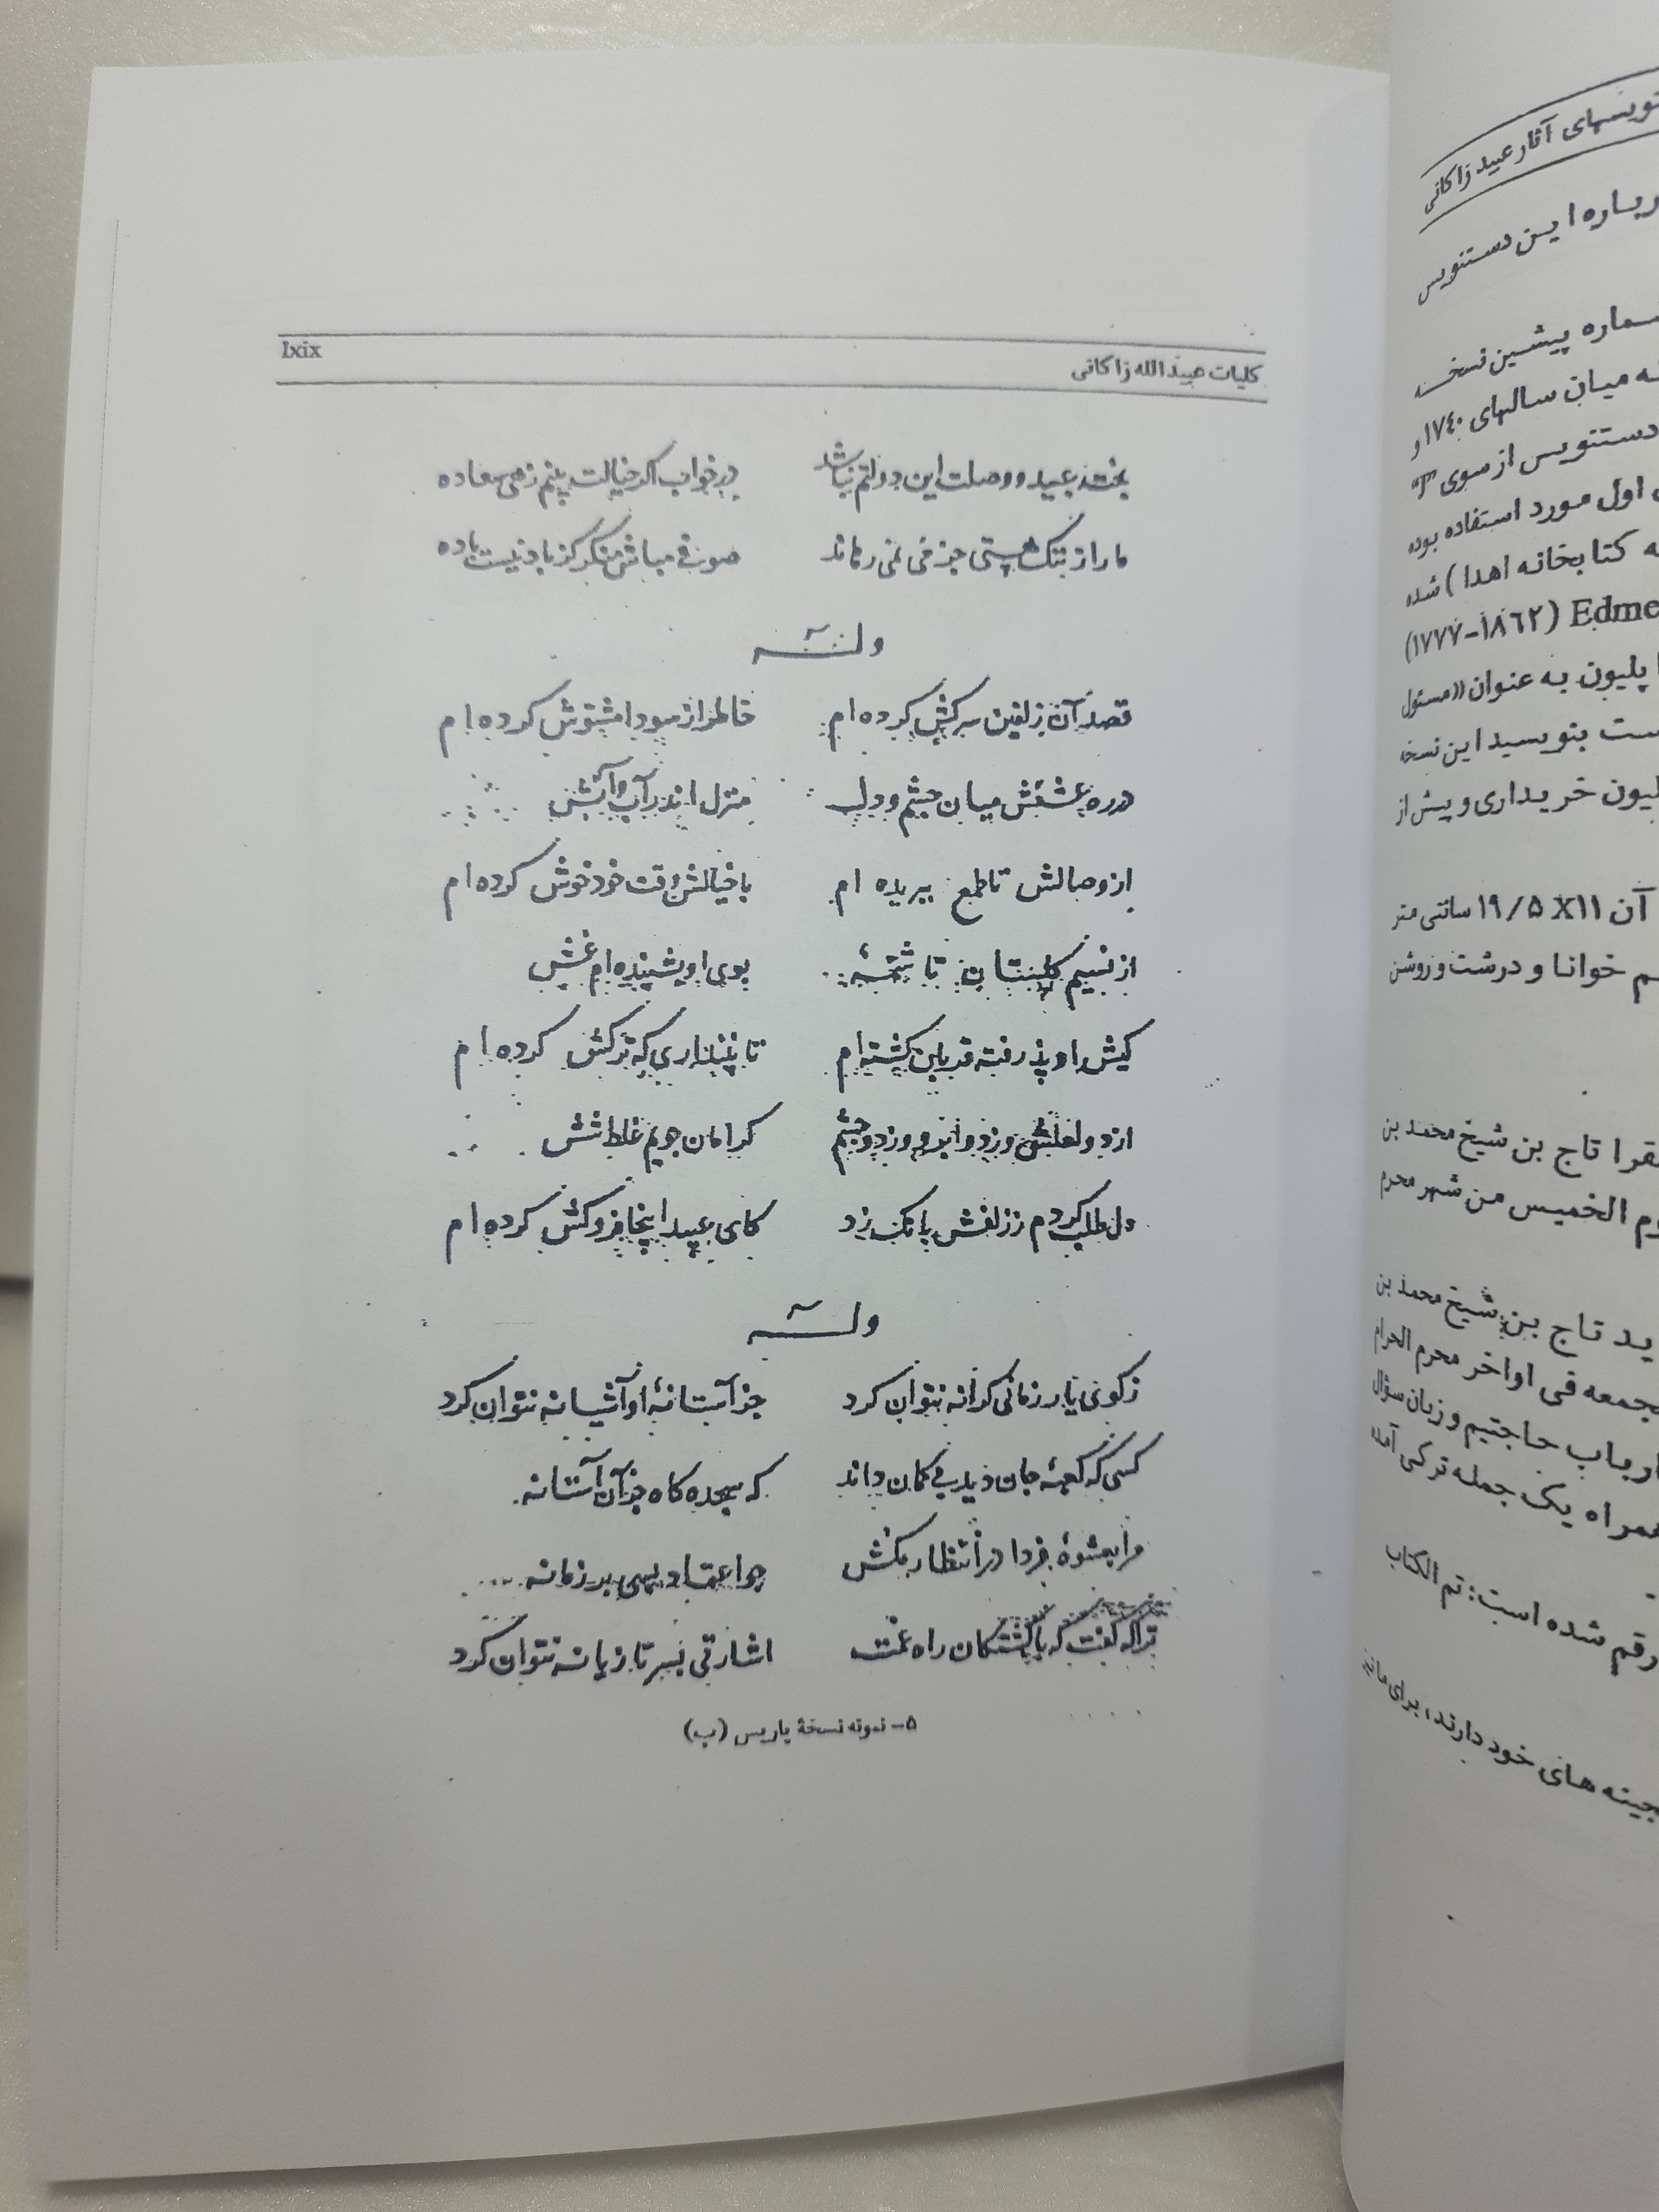 کلیات عبید الله زاکانی lxix
بخت عبید و وصلت این دولتم نباشد در خواب اگر خیالت بینم زهی سعاده
ما را ز ننگ هستی جز می نمی رهاند صوفی مباش منکر کز باد نیست باده
وله
قصد آن زلفین سرکش کرده ام خاطر از سودا مشوش کرده ام
در ره عشقش میان چشم و دل منزل اندر آب و آتش
از وصالش تا طمع ببریده ام با خیالش وقت خود خوش کرده ام
از نسیم گلستان تا شمه بوی او بشنیده ام غش
کیش او پذرفته قربان گشته ام تا نپنداری که ترکش کرده ام
از دو لعلش وز دو ابرو وز دو چشم کرامان جویم غلط شش
دل طلب کردم ز زلفش بانک زد کای عبید اینجا فروکش کرده ام
وله
ز کوی یار زمانی کرانه نتوان کرد جز آستانهٔ او آشیانه نتوان کرد
کسی که کعبهٔ جان دید بی کمان داند که سجده کاه جز آن آستانه
مرا بعشوهٔ فردا در انتظار مکش چو اعتماد بسی بر زمانه
ترا که گفت که با کشتکان راه غمت اشارتی بسر تازیانه نتوان کرد
۵- نمونه نسخهٔ پاریس (ب)
نویسهای آثار عبید زاکانی
درباره این دستنویس
شماره پیشین نسخه
میان سالهای ۱۷۴۰ و
دستنویس از سوی
اول مورد استفاده بوده
کتابخانه اهدا) شده
Edme (۱۷۷۷-۱۸۶۲)
پلیون به عنوان «مسئول
است بنویسید این نسخه
پلیون خریداری و پیش از
آن ۱۱X ۱۹/۵ سانتی متر
خوانا و درشت و روشن
تاج بن شیخ محمد بن
یوم الخمیس من شهر محرم
تاج بن شیخ محمد بن
جمعه فی اواخر محرم الحرام
ارباب حاجتیم و زبان سؤال
همراه یک جمله ترکی آمده
رقم شده است: تم الکتاب
های خود دارند، برای